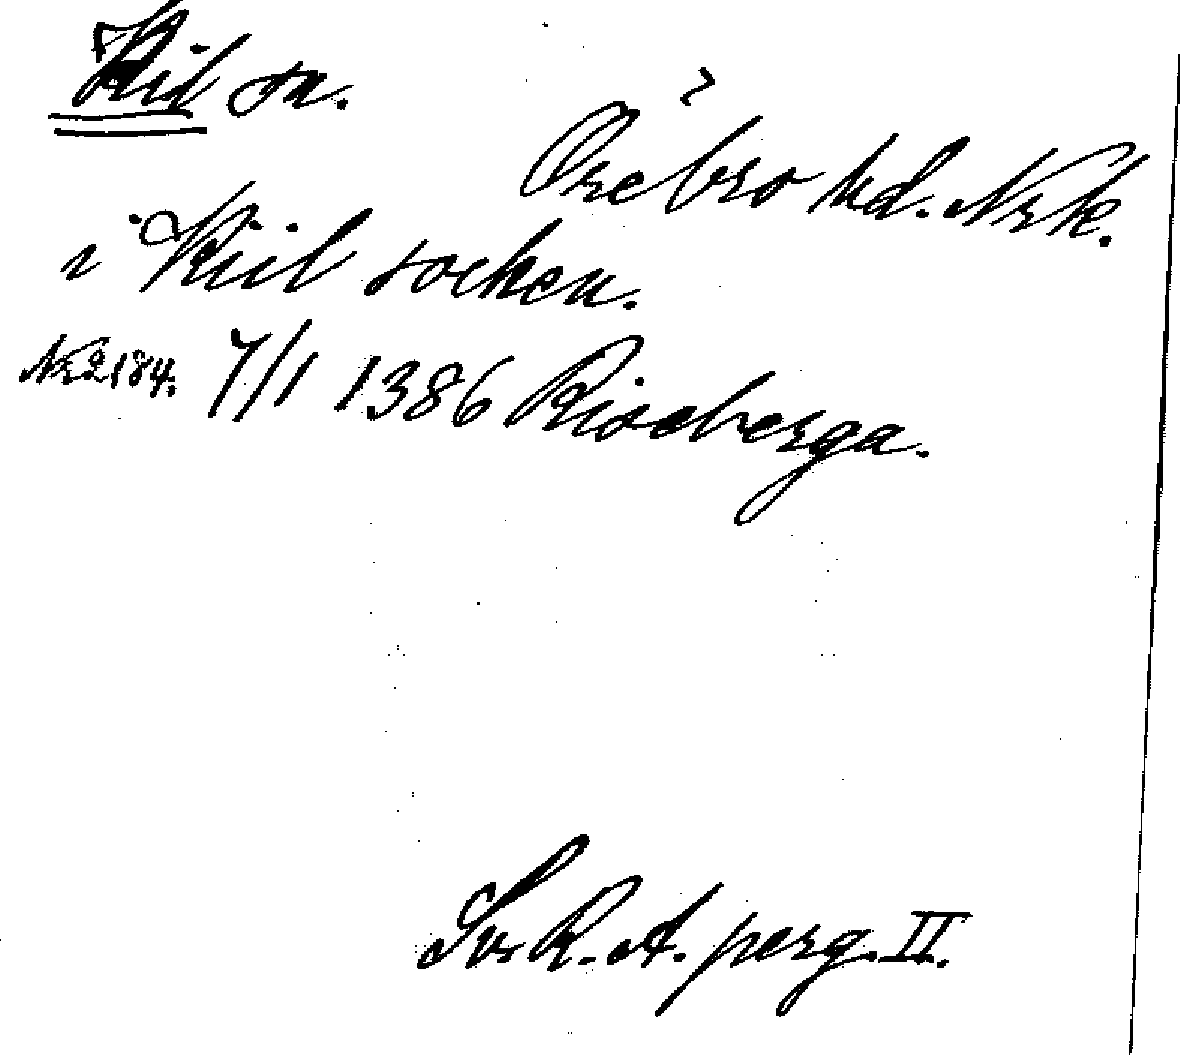 Kil sn.
Örebro hd. Nrk.
i Kiil socken.
Nr 2184. 7/1 1386 Riseberga.
Sv. R. A. perg. II.